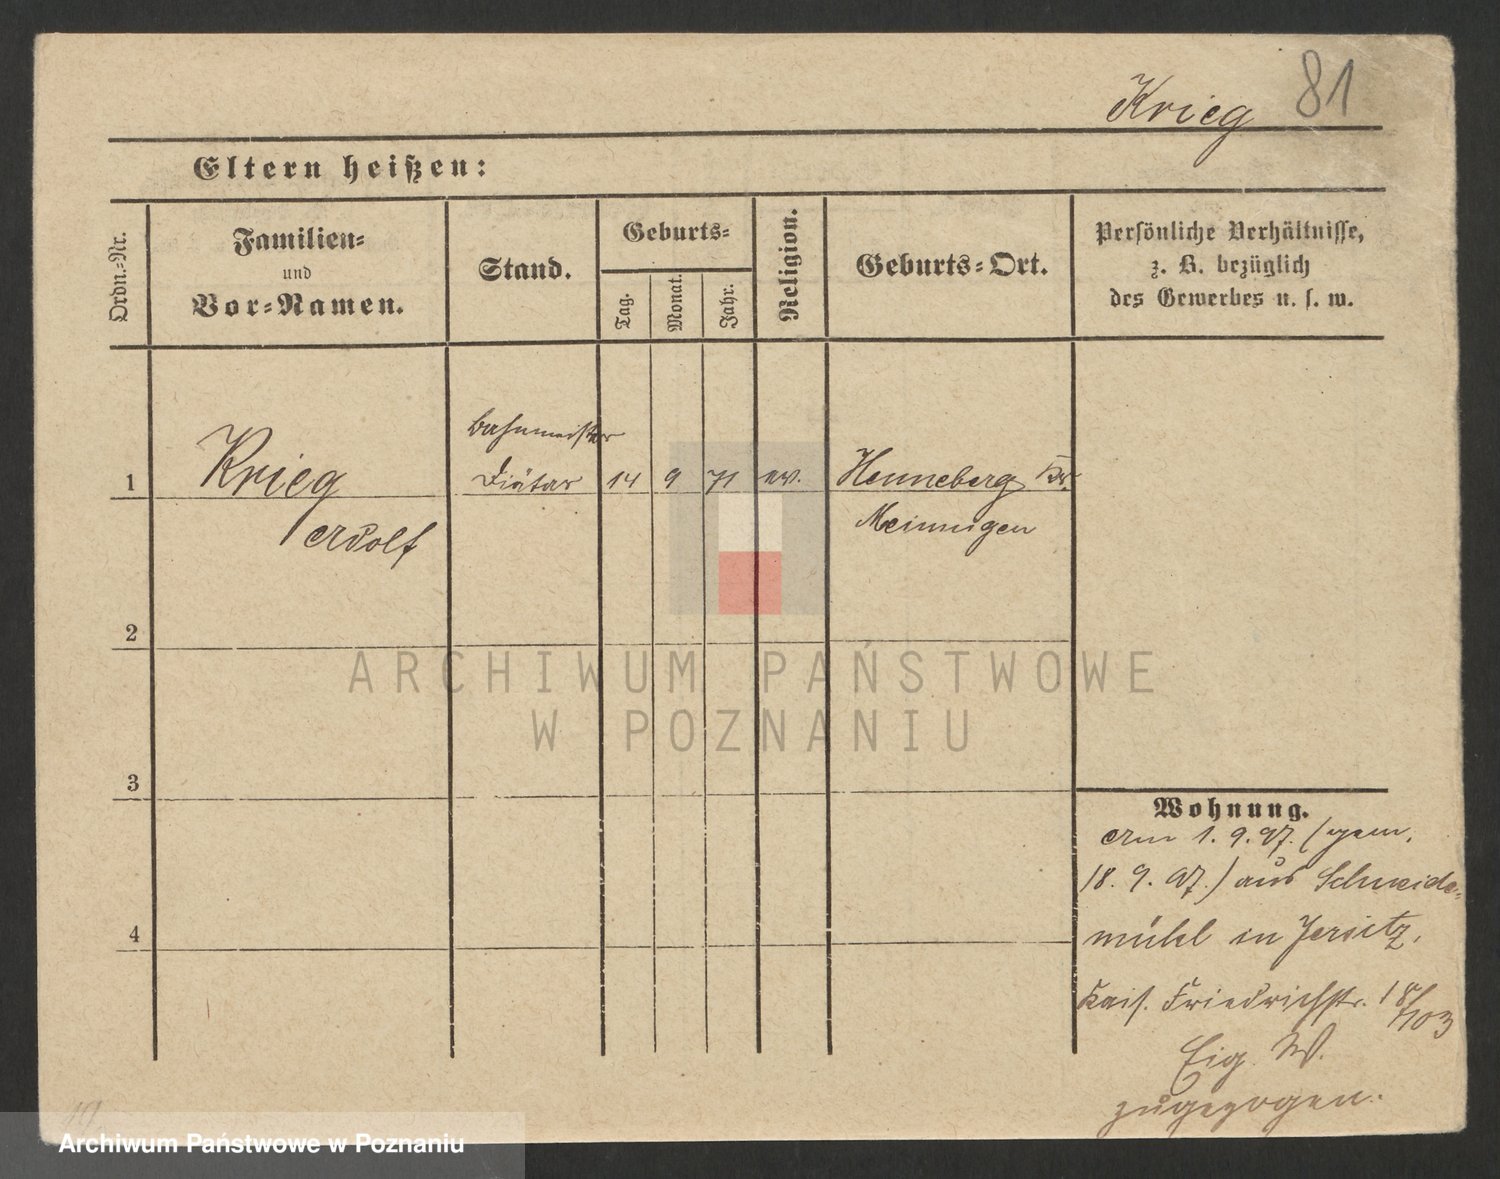 Krieg 81
Eltern heißen:
Ordn.-Nr.
Familien-
und
Vor-Namen.
Stand.
Geburts-
Tag.
Monat.
Jahr.
Religion.
Geburts-Ort.
Persönliche Verhältnisse,
z. B. bezüglich
des Gewerbes u. s. w.
Bahnmeister
1 Krieg Diätar 14 9 71 ev. Henneberg Kr.
Adolf Meiningen
2
ARCHIWUM PAŃSTWOWE
W POZNANIU
3
Wohnung.
Am 1. 9. 97. (gem.
18. 9. 97.) aus Schneide-
4 mühl in Jersitz,
Kais. Friedrichstr. 18/103
Eig. W.
zugezogen.
Archiwum Państwowe w Poznaniu